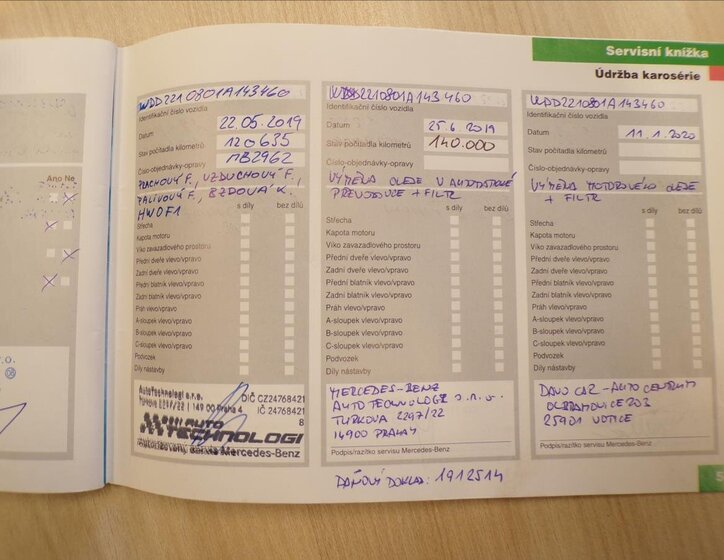 Servisní knížka
Údržba karosérie
Ano Ne
WDD2210801A143460
Identifikační číslo vozidla
22.05.2019
Datum
120635
Stav počítadla kilometrů
MB2962
Číslo-objednávky-opravy
PRACHOVÝ F., VZDUCHOVÝ F.,
PALIVOVÝ F., BZDOVÁ K.,
HWOF1
s díly bez dílů
Střecha
Kapota motoru
Víko zavazadlového prostoru
Přední dveře vlevo/vpravo
Zadní dveře vlevo/vpravo
Přední blatník vlevo/vpravo
Zadní blatník vlevo/vpravo
Práh vlevo/vpravo
A-sloupek vlevo/vpravo
B-sloupek vlevo/vpravo
C-sloupek vlevo/vpravo
Podvozek
Díly nástavby
AutoTechnologi s.r.o.
Türkova 2297/22 | 149 00 Praha 4
DIČ CZ24768421
IČ 24768421
8
AUTO
TECHNOLOGI
Autorizovaný servis Mercedes-Benz
WDD2210801A143460
Identifikační číslo vozidla
Datum
25.6.2019
Stav počítadla kilometrů
140.000
Číslo-objednávky-opravy
VÝMĚNA OLEJE V AUTOMATICKÉ
PŘEVODOVCE + FILTR
s díly bez dílů
Střecha
Kapota motoru
Víko zavazadlového prostoru
Přední dveře vlevo/vpravo
Zadní dveře vlevo/vpravo
Přední blatník vlevo/vpravo
Zadní blatník vlevo/vpravo
Práh vlevo/vpravo
A-sloupek vlevo/vpravo
B-sloupek vlevo/vpravo
C-sloupek vlevo/vpravo
Podvozek
Díly nástavby
MERCEDES-BENZ
AUTO TECHNOLOGI s.r.o.
TÜRKOVA 2297/22
14900 PRAHA 4
Podpis/razítko servisu Mercedes-Benz
DAŇOVÝ DOKLAD: 1912514
WDD2210801A143460
Identifikační číslo vozidla
Datum
11.1.2020
Stav počítadla kilometrů
Číslo-objednávky-opravy
VÝMĚNA MOTOROVÉHO OLEJE
+ FILTR
s díly bez dílů
Střecha
Kapota motoru
Víko zavazadlového prostoru
Přední dveře vlevo/vpravo
Zadní dveře vlevo/vpravo
Přední blatník vlevo/vpravo
Zadní blatník vlevo/vpravo
Práh vlevo/vpravo
A-sloupek vlevo/vpravo
B-sloupek vlevo/vpravo
C-sloupek vlevo/vpravo
Podvozek
Díly nástavby
DAVO CAR - AUTO CENTRUM
OLBRAMOVICE 203
25901 VOTICE
Podpis/razítko servisu Mercedes-Benz